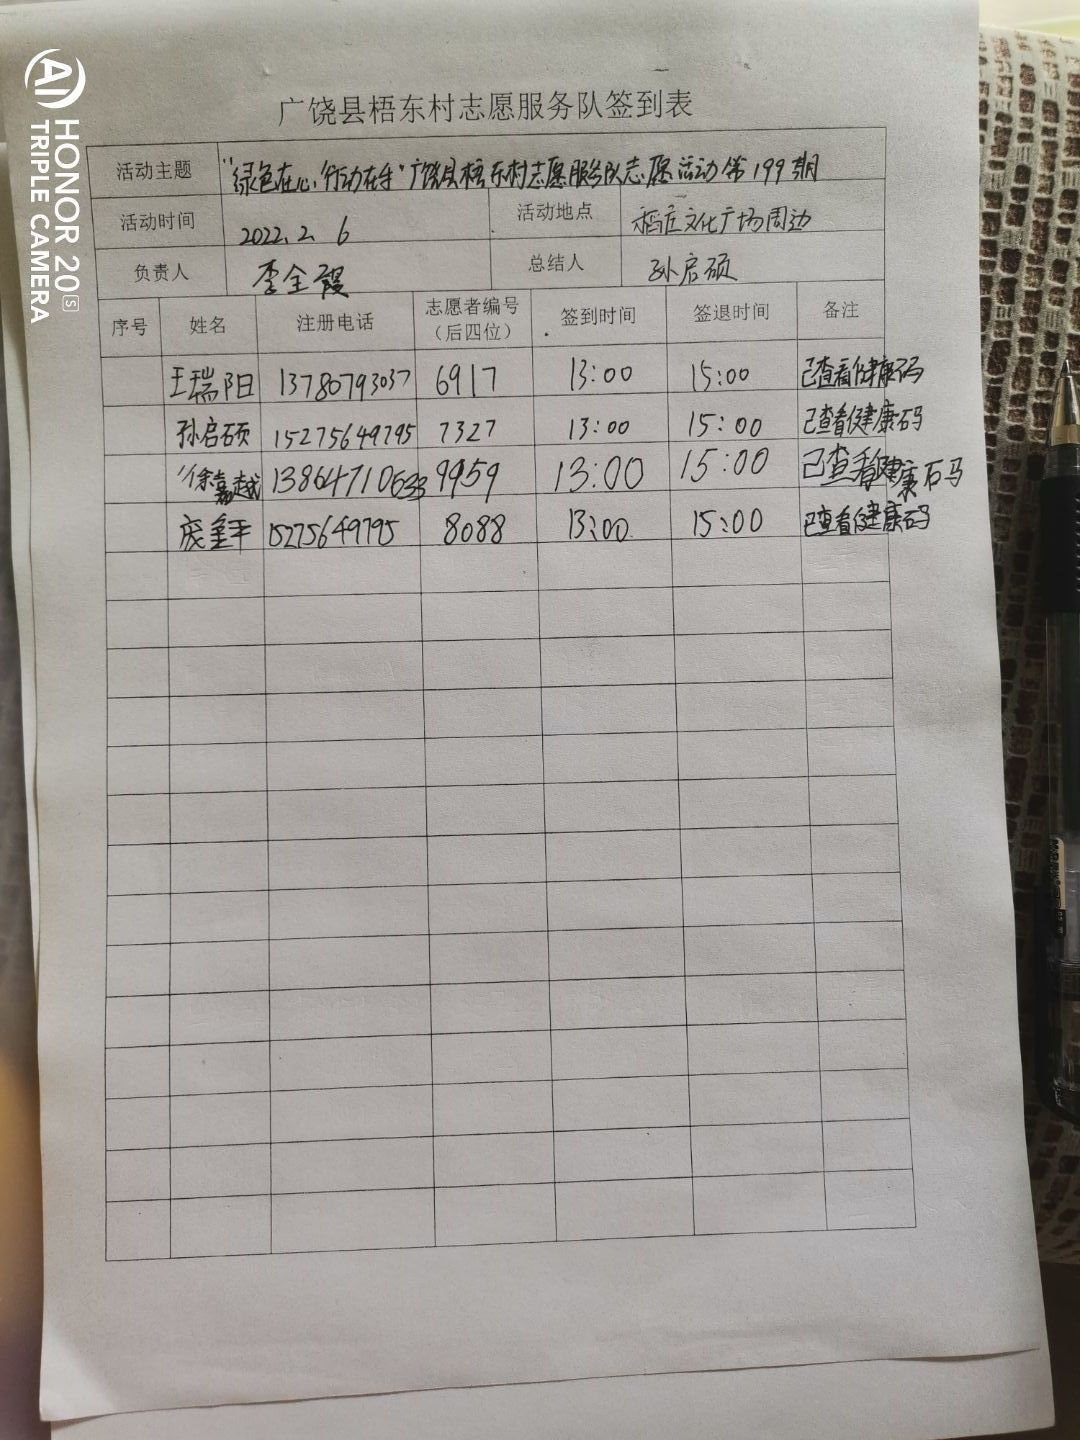 AI HONOR 20S
TRIPLE CAMERA
广饶县梧东村志愿服务队签到表
活动主题 "绿色在心,行动在手"广饶县梧东村志愿服务队志愿活动第199期
活动时间 2022.2.6 活动地点 稻庄文化广场周边
负责人 李全霞 总结人 孙启硕
序号 姓名 注册电话 志愿者编号(后四位) 签到时间 签退时间 备注
王瑞阳 13780793037 6917 13:00 15:00 已查看健康码
孙启硕 15275649795 7327 13:00 15:00 已查看健康码
徐嘉越 13864710633 9959 13:00 15:00 已查看健康码
15275649795 8088 13:00 15:00 已查看健康码